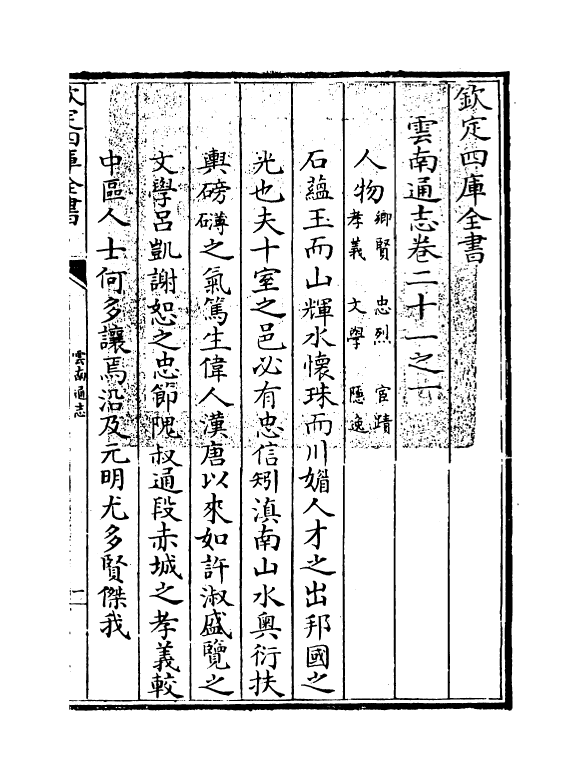 欽定四庫全書
雲南通志卷二十一之一
人物 卿賢 忠烈 宦蹟
孝義 文學 隱逸
石蘊玉而山輝水懷珠而川媚人才之出邦國之
光也夫十室之邑必有忠信矧滇南山水奧衍扶
輿磅礴之氣篤生偉人漢唐以來如許淑盛覽之
文學呂凱謝恕之忠節隗叔通段赤城之孝義較
中區人士何多讓焉沿及元明尤多賢傑我
欽定四庫全書
雲南通志
一